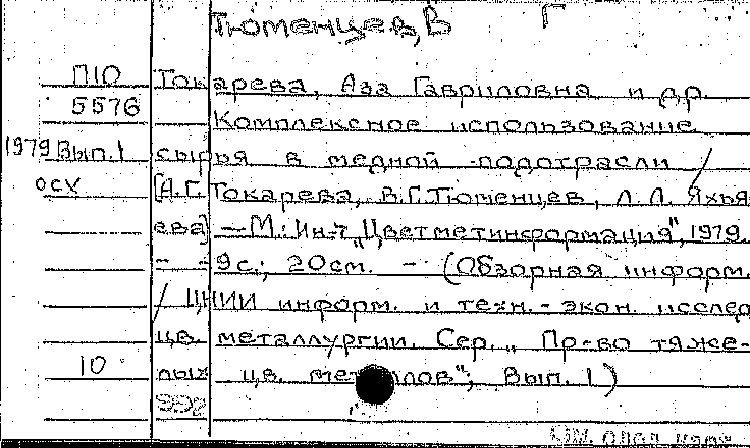 Тюменцев, В Г
П10 Токарева, Аза Гавриловна и др.
5576 Комплексное использование
1979 Вып.1 сырья в медной подотрасли /
осх [А.Г. Токарева, В.Г. Тюменцев, Л.Л. Яхья
ева] — М.: Ин-т "Цветметинформация", 1979.
- 9с.; 20см. - (Обзорная информ.
/ ЦНИИ информ. и техн.-экон. исслед
цв. металлургии. Сер. "Пр-во тяже-
10 лых цв. металлов"; Вып. 1)
992
См.